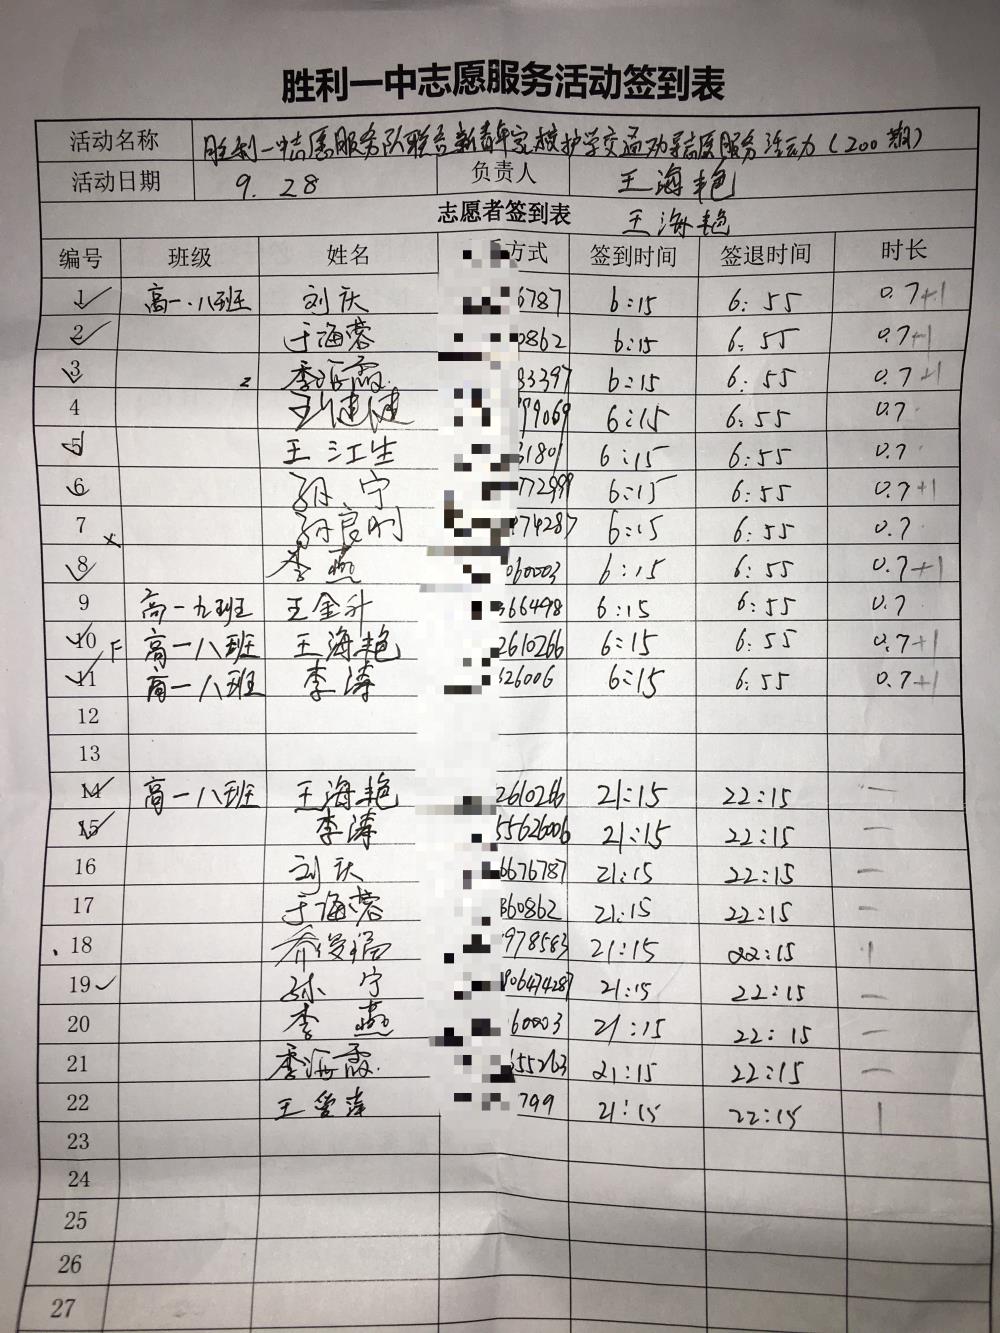 胜利一中志愿服务活动签到表
活动名称 胜利一中志愿服务队联合新青年家校护学交通劝导志愿服务活动(200期)
活动日期 9.28 负责人 王海艳
志愿者签到表 王海艳
编号 班级 姓名 方式 签到时间 签退时间 时长
1 高一.八班 刘庆 6787 6:15 6:55 0.7+1
2 于海蓉 0862 6:15 6:55 0.7+1
3 李海霞 83397 6:15 6:55 0.7+1
4 健健 99069 6:15 6:55 0.7
5 王江生 31801 6:15 6:55 0.7
6 孙宁 772999 6:15 6:55 0.7+1
7 孙良刚 474287 6:15 6:55 0.7
8 李燕 060003 6:15 6:55 0.7+1
9 高一九班 王金升 366498 6:15 6:55 0.7
10 高一八班 王海艳 2610266 6:15 6:55 0.7+1
11 高一八班 李涛 326006 6:15 6:55 0.7+1
12
13
14 高一八班 王海艳 2610266 21:15 22:15 一
15 李涛 55626006 21:15 22:15 一
16 刘庆 6676787 21:15 22:15 一
17 于海蓉 360862 21:15 22:15 一
18 978583 21:15 22:15 1
19 孙宁 906474287 21:15 22:15 一
20 李燕 60003 21:15 22:15 一
21 李海霞 655263 21:15 22:15 一
22 王 799 21:15 22:15 1
23
24
25
26
27